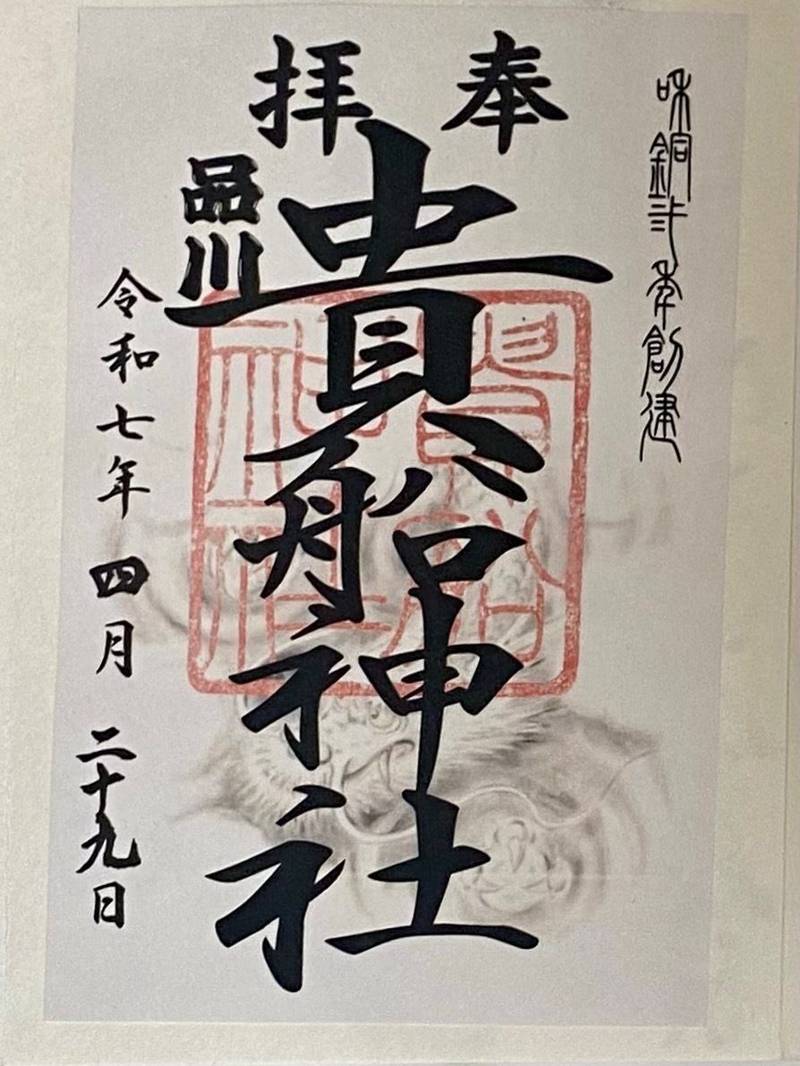 和銅弍年創建
奉拝
貴船神社
貴船
神社
品川
令和七年四月二十九日